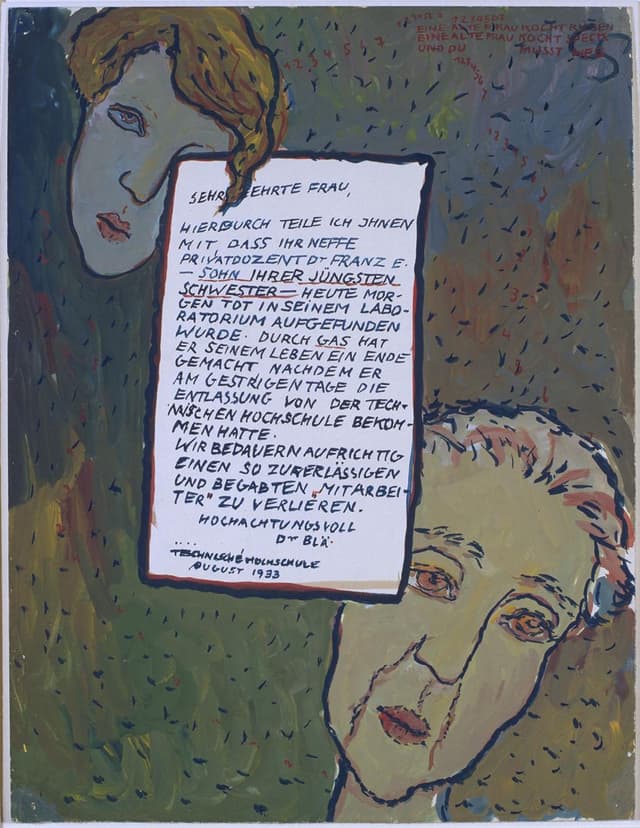 1 2 3 4 5 6 7
EINE ALTE FRAU KOCHT RÜBEN
EINE ALTE FRAU KOCHT SPECK
UND DU MUSST WEG
1 2 3 4 5 6 7
SEHR GEEHRTE FRAU,
HIERDURCH TEILE ICH IHNEN
MIT, DASS IHR NEFFE
PRIVATDOZENT Dr FRANZ E.
– SOHN IHRER JÜNGSTEN
SCHWESTER – HEUTE MOR-
GEN TOT IN SEINEM LABO-
RATORIUM AUFGEFUNDEN
WURDE. DURCH GAS HAT
ER SEINEM LEBEN EIN ENDE
GEMACHT NACHDEM ER
AM GESTRIGEN TAGE DIE
ENTLASSUNG VON DER TECH-
NISCHEN HOCHSCHULE BEKOM-
MEN HATTE.
WIR BEDAUERN AUFRICHTIG
EINEN SO ZUVERLÄSSIGEN
UND BEGABTEN „MITARBEI-
TER" ZU VERLIEREN.
HOCHACHTUNGSVOLL
Dr BLÄ.
....
TECHNISCHE HOCHSCHULE
AUGUST 1933